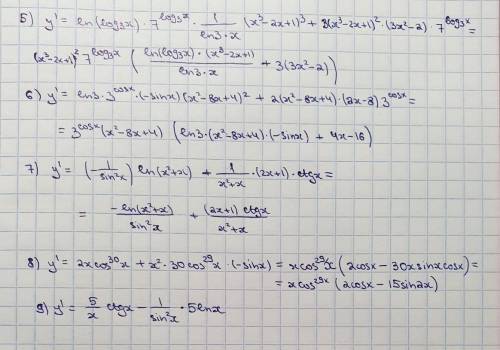 5) y' = ln(log₃x) · 7^(log₃x) · 1/(ln3·x) (x³-2x+1)³ + 3(x³-2x+1)² · (3x²-2) · 7^(log₃x) =
(x³-2x+1)² 7^(log₃x) ( (ln(log₃x) · (x³-2x+1))/(ln3·x) + 3(3x²-2) )
6) y' = ln3 · 3^(cosx) · (-sinx)(x²-8x+4)² + 2(x²-8x+4)·(2x-8)·3^(cosx) =
= 3^(cosx) (x²-8x+4) (ln3·(x²-8x+4)·(-sinx) + 4x-16)
7) y' = (-1/sin²x) ln(x²+x) + 1/(x²+x) · (2x+1) · ctgx =
= -ln(x²+x)/sin²x + (2x+1)ctgx/(x²+x)
8) y' = 2xcos³⁰x + x² · 30cos²⁹x · (-sinx) = xcos²⁹x (2cosx - 30xsinxcosx) =
= xcos²⁹x (2cosx - 15sin2x)
9) y' = 5/x ctgx - 1/sin²x · 5lnx